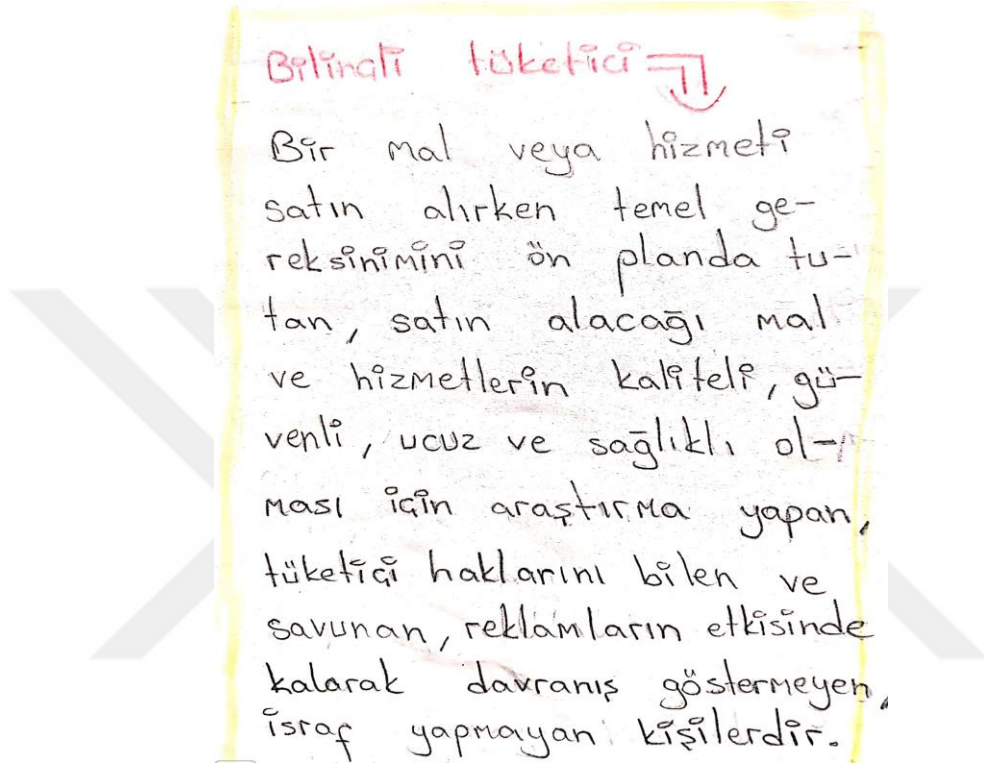 Bilinçli tüketici
Bir mal veya hizmeti
satın alırken temel ge-
reksinimini ön planda tu-
tan, satın alacağı mal
ve hizmetlerin kaliteli, gü-
venli, ucuz ve sağlıklı ol-
ması için araştırma yapan,
tüketici haklarını bilen ve
savunan, reklamların etkisinde
kalarak davranış göstermeyen,
israf yapmayan kişilerdir.